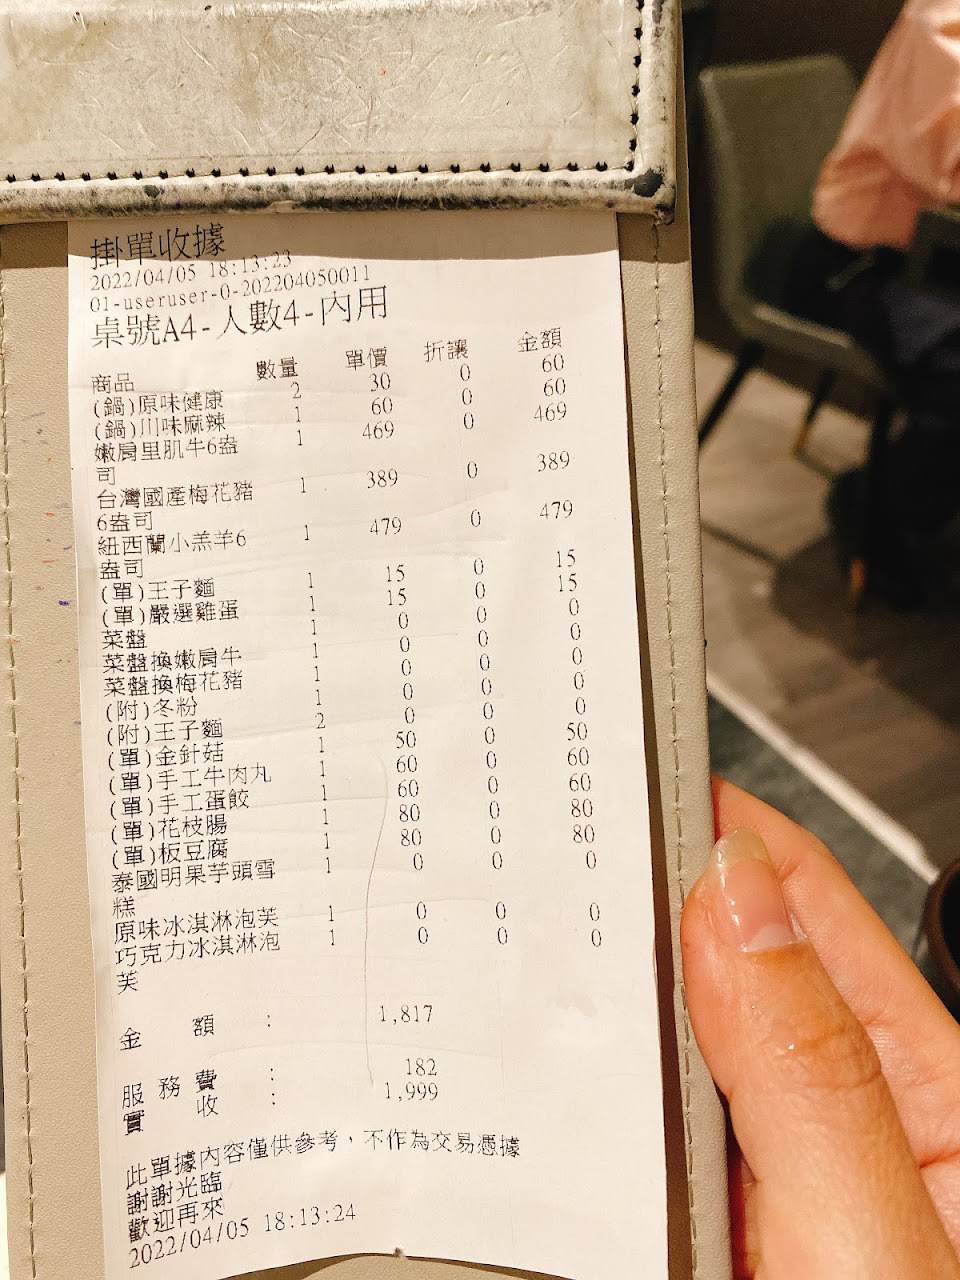 掛單收據
2022/04/05 18:13:23
01-useruser-0-202204050011
桌號A4-人數4-內用
商品 數量 單價 折讓 金額
(鍋)原味健康 2 30 0 60
(鍋)川味麻辣 1 60 0 60
嫩肩里肌牛6盎 1 469 0 469
司
台灣國產梅花豬 1 389 0 389
6盎司
紐西蘭小羔羊6 1 479 0 479
盎司
(單)王子麵 1 15 0 15
(單)嚴選雞蛋 1 15 0 15
菜盤 1 0 0 0
菜盤換嫩肩牛 1 0 0 0
菜盤換梅花豬 1 0 0 0
(附)冬粉 1 0 0 0
(附)王子麵 2 0 0 0
(單)金針菇 1 50 0 50
(單)手工牛肉丸 1 60 0 60
(單)手工蛋餃 1 60 0 60
(單)花枝腸 1 80 0 80
(單)板豆腐 1 80 0 80
泰國明果芋頭雪 1 0 0 0
糕
原味冰淇淋泡芙 1 0 0 0
巧克力冰淇淋泡 1 0 0 0
芙
金額: 1,817
服務費: 182
實收: 1,999
此單據內容僅供參考，不作為交易憑據
謝謝光臨
歡迎再來
2022/04/05 18:13:24